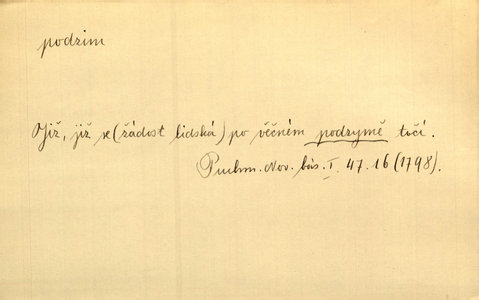 podzim
Již, již se (žádost lidská) po věčném podzymě točí.
Puchm. Nov. bás. I. 47. 16 (1798).